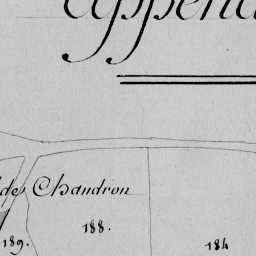 de Chaudron
188.
189.
184